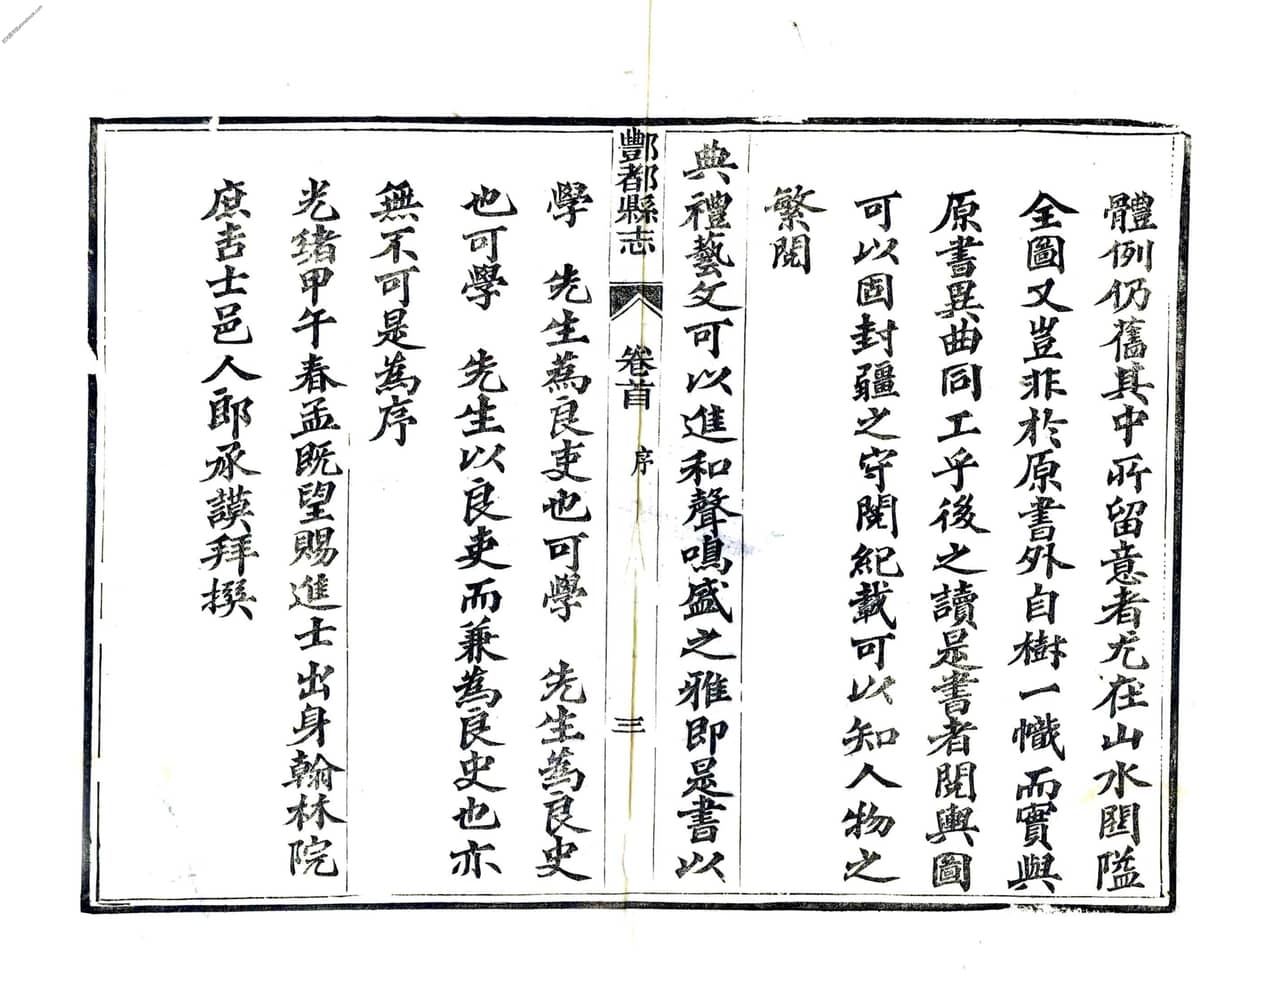 體例仍舊其中所留意者尤在山水關隘
全圖又豈非於原書外自樹一幟而實與
原書異曲同工乎後之讀是書者閱輿圖
可以固封疆之守閱紀載可以知人物之
繁閱
典禮藝文可以進和聲鳴盛之雅即是書以
酆都縣志 卷首 序 三
學 先生為良吏也可學 先生為良史
也可學 先生以良吏而兼為良史也亦
無不可是為序
光緒甲午春孟既望賜進士出身翰林院
庶吉士邑人郎承謨拜撰